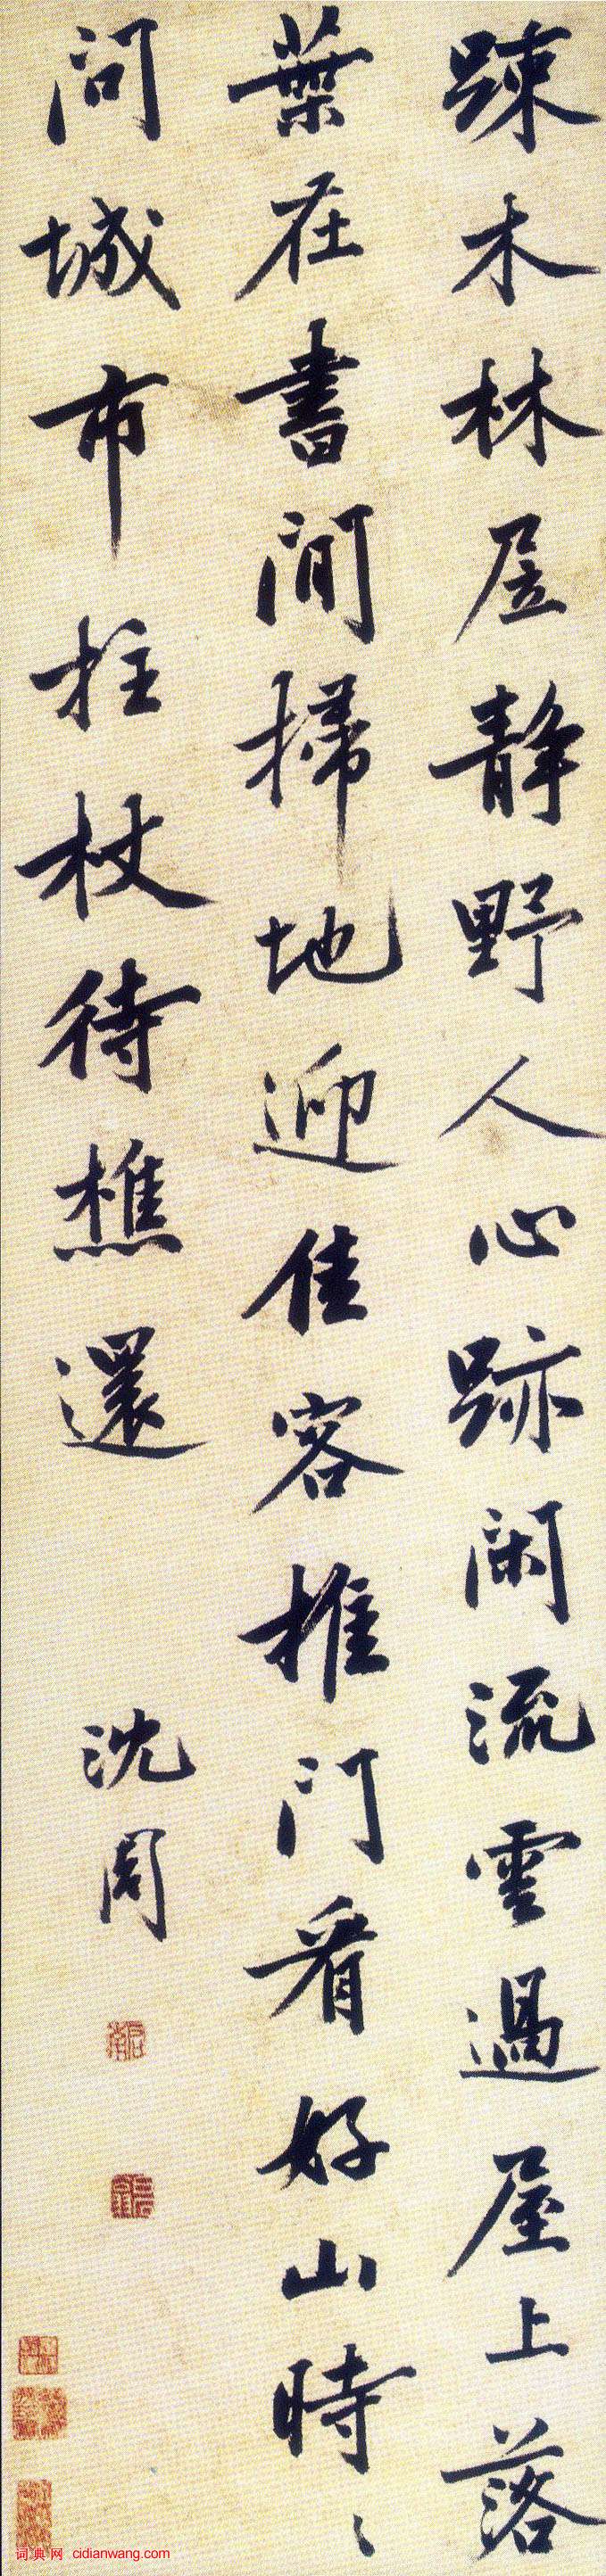 踈木林居静野人心跡闲流雲過屋上落
葉在書間掃地迎佳客推門看好山時〻
问城市拄杖待樵還
沈周
词典网 cidianwang.com